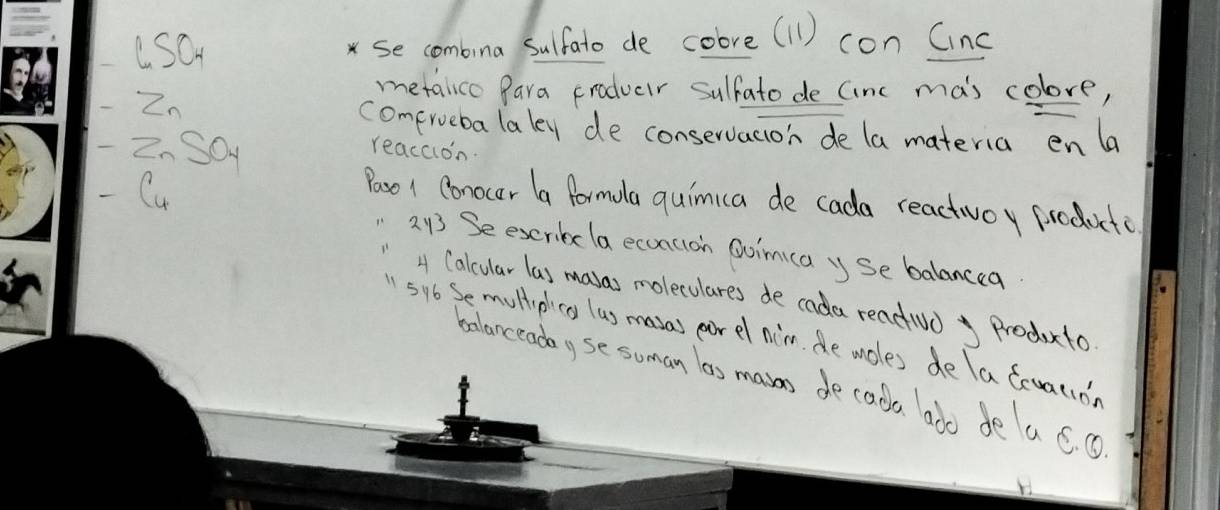 - CuSO4
- Zn
- ZnSO4
- Cu
* Se combina sulfato de cobre (II) con Cinc
metálico Para producir sulfato de Cinc más cobre,
Comprueba la ley de conservación de la materia en la
reacción.
Paso 1 Conocer la formula química de cada reactivo y producto.
" 2y3 Se escribe la ecuación Química y se balancea.
" 4 Calcular las masas moleculares de cada reactivo y Producto.
" 5y6 Se multiplica las masas por el núm. de moles de la Ecuación
balanceada y se suman las masas de cada lado de la E.Q.